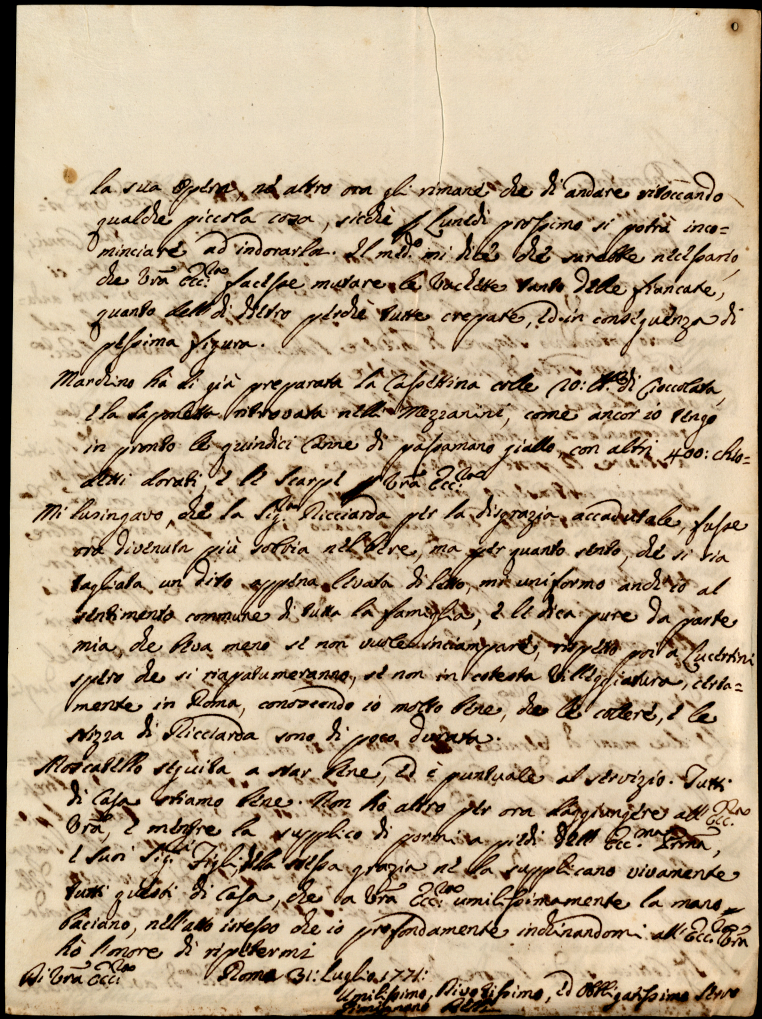 la sua opera, nè altro ora gli rimane che di andare ritoccando
qualche piccola cosa, sicchè p Lunedì prossimo si potrà inco=
minciare ad indorarla. Il med.o mi dice che sarebbe necessario,
che Vrã Ecc.za facesse mutare le Vachette tanto delle fiancate,
quanto dell di dietro perchè tutte crepate, ed in conseguenza di
pessima figura.
Marchino hà di già preparata la Cassettina colle 20: di Cioccolata,
e la saponetta ritrovata nelli Mezzanini, come ancor io tengo
in pronto le quindici Canne di passamano giallo, con altri 400: chio=
detti dorati, e le Scarpe p Vrã Ecc.za
Mi lusingavo, che la Sig.ra Ricciarda per la disgrazia accadutale, fusse
ora divenuta più sobbia nel bere, ma per quanto sento, che si sia
tagliata un dito appena levata di letto, mi uniformo anch'io al
sentimento commune di tutta la famiglia, e le dica pure da parte
mia che beva meno se non vuole inciampare, rispetto poi a Lucertini
spero che si riapatumeranno, se non in cotesta Villeggiatura, certa=
mente in Roma, conoscendo io molto bene, che le collere, e le
stizza di Ricciarda sono di poco durata.
Moscatello seguita a star bene, ed è puntuale al servizio. Tutti
di Casa stiamo bene. Non hò altro per ora d'aggiungere all' Ecc.za
Vrã, e mentre la supplico di pormi a piedi dell' Ecc.ma
e suoi Sig.ri Figli, della stessa grazia ne la supplicano vivamente
tutti questi di Casa, che a Vrã Ecc.za umilissimamente la mano
baciano, nell'atto istesso che io profondamente inchinandomi all' Ecc.za Vrã
hò l'onore di ripetermi
Di Vrã Ecc.za Roma 31: Luglio 1771:
Umilissimo, Divotissimo, ed Obbligatissimo Servo